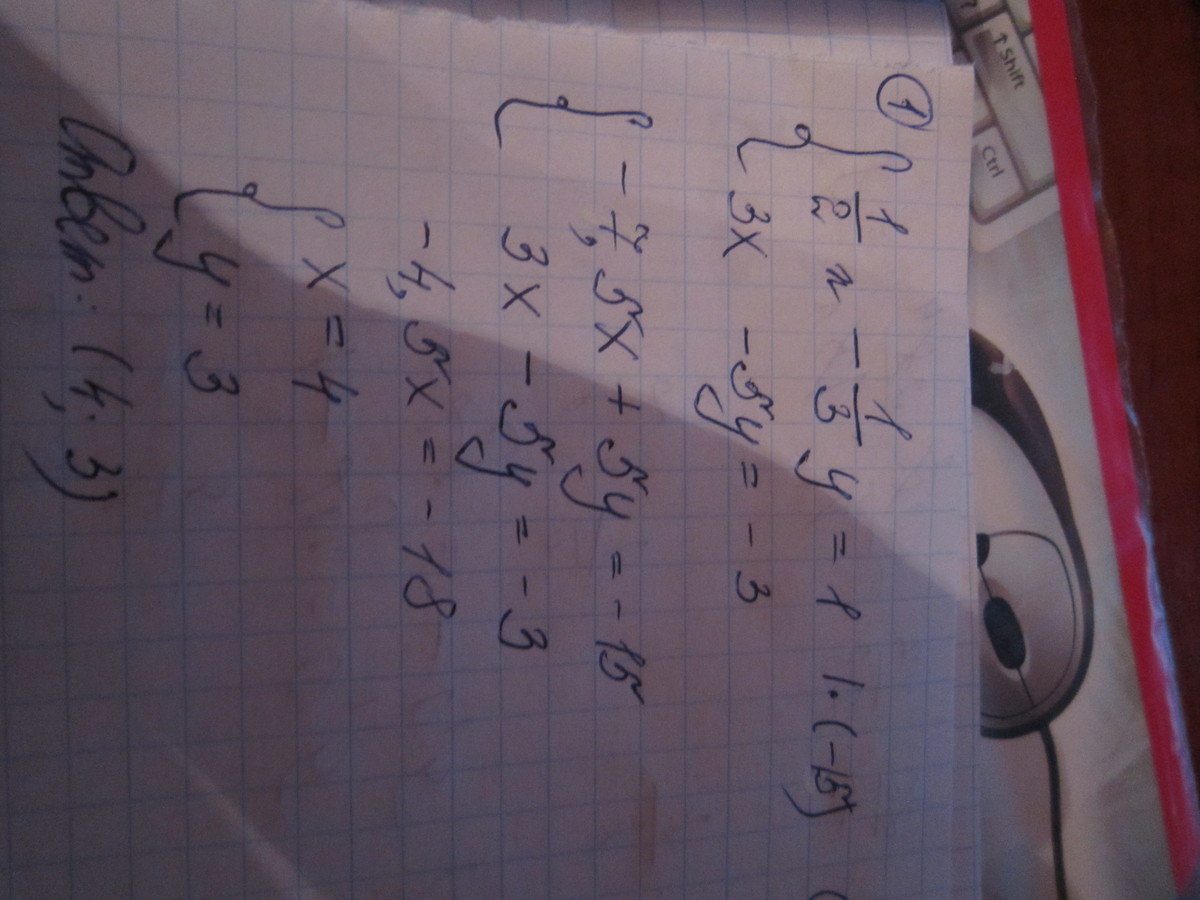 ①
{ 1/2 x - 1/3 y = 1 |·(-15)
3x - 5y = -3
{ -7,5x + 5y = -15
3x - 5y = -3
-4,5x = -18
{ x = 4
y = 3
Ответ: (4; 3)
↑ Shift
Ctrl